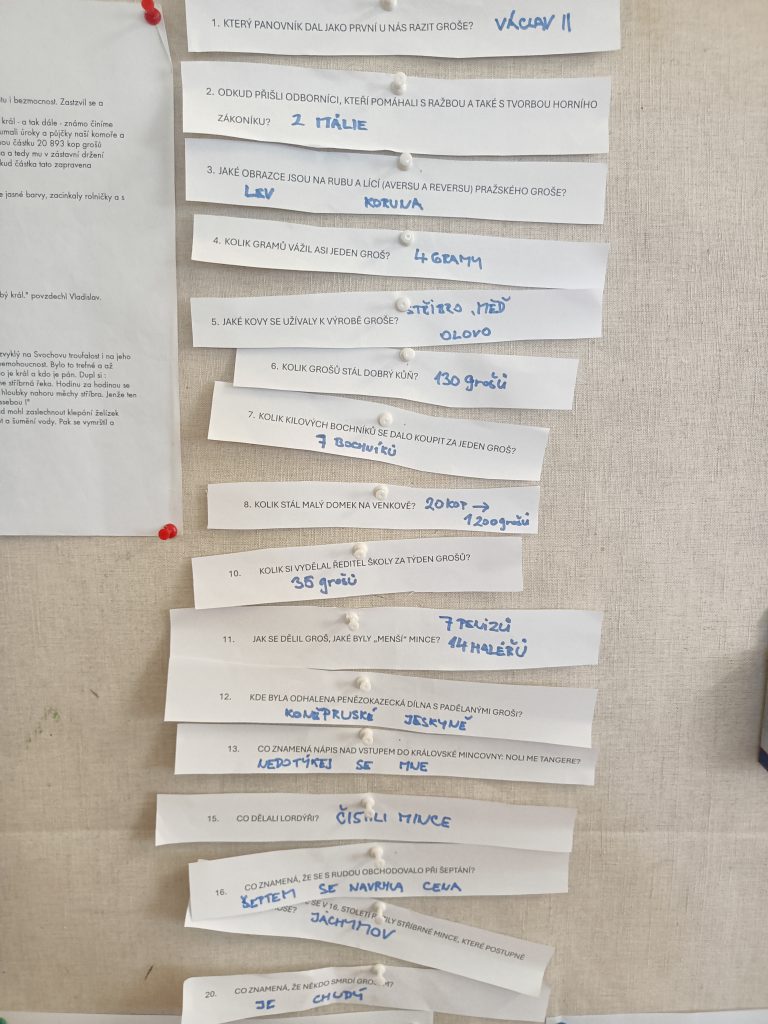 tu i bezmocnost. Zastzvil se a
král - a tak dále - známo činíme
umali úroky a půjčky naší komoře a
ou částku 20 893 kop grošů
a a tedy mu v zástavní držení
kud částka tato zapravena
e jasné barvy, zacinkaly rolničky a s
bý král." povzdechl Vladislav.
zvyklý na Svochovu troufalost i na jeho
nemohoucnost. Bylo to trefné a až
o je král a kdo je pán. Dupl si :
ne stříbrná řeka. Hodinu za hodinou se
hloubky nahoru měchy stříbra. Jenže ten
sebou !"
d mohl zaslechnout klepání želízek
t a šumění vody. Pak se vymrštil a
1. KTERÝ PANOVNÍK DAL JAKO PRVNÍ U NÁS RAZIT GROŠE? VÁCLAV II
2. ODKUD PŘIŠLI ODBORNÍCI, KTEŘÍ POMÁHALI S RAŽBOU A TAKÉ S TVORBOU HORNÍHO
ZÁKONÍKU? Z ITÁLIE
3. JAKÉ OBRAZCE JSOU NA RUBU A LÍCÍ (AVERSU A REVERSU) PRAŽSKÉHO GROŠE?
LEV KORUNA
4. KOLIK GRAMŮ VÁŽIL ASI JEDEN GROŠ? 4 GRAMY
STŘÍBRO, MĚĎ
5. JAKÉ KOVY SE UŽÍVALY K VÝROBĚ GROŠE?
OLOVO
6. KOLIK GROŠŮ STÁL DOBRÝ KŮŇ? 130 grošů
7. KOLIK KILOVÝCH BOCHNÍKŮ SE DALO KOUPIT ZA JEDEN GROŠ?
7 BOCHNÍKŮ
8. KOLIK STÁL MALÝ DOMEK NA VENKOVĚ? 20 KOP →
1200 grošů
10. KOLIK SI VYDĚLAL ŘEDITEL ŠKOLY ZA TÝDEN GROŠŮ?
35 grošů
7 PENÍZŮ
11. JAK SE DĚLIL GROŠ, JAKÉ BYLY „MENŠÍ" MINCE? 14 HALÉŘŮ
12. KDE BYLA ODHALENA PENĚZOKAZECKÁ DÍLNA S PADĚLANÝMI GROŠI?
KONĚPRUSKÉ JESKYNĚ
13. CO ZNAMENÁ NÁPIS NAD VSTUPEM DO KRÁLOVSKÉ MINCOVNY: NOLI ME TANGERE?
NEDOTÝKEJ SE MNE
15. CO DĚLALI LORDÝŘI? ČISTILI MINCE
16. CO ZNAMENÁ, ŽE SE S RUDOU OBCHODOVALO PŘI ŠEPTÁNÍ?
ŠEPTEM SE NAVRHLA CENA
SE V 16. STOLETÍ STŘÍBRNÉ MINCE, KTERÉ POSTUPNĚ
JÁCHYMOV
20. CO ZNAMENÁ, ŽE NĚKDO SMRDÍ GROŠEM?
JE CHUDÝ